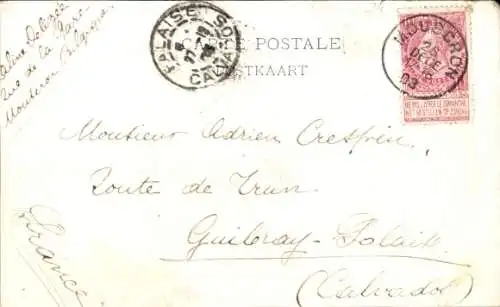 CARTE POSTALE
POSTKAART
FALAISE
CALVADOS
MOUSCRON
03
NE PAS LIVRER LE DIMANCHE
NIET BESTELLEN OP ZONDAG
Rue de la Gare
Mouscron Belgique
Monsieur Adrien Crespin
Route de Trun
Guibray-Falaise
(Calvados)
France